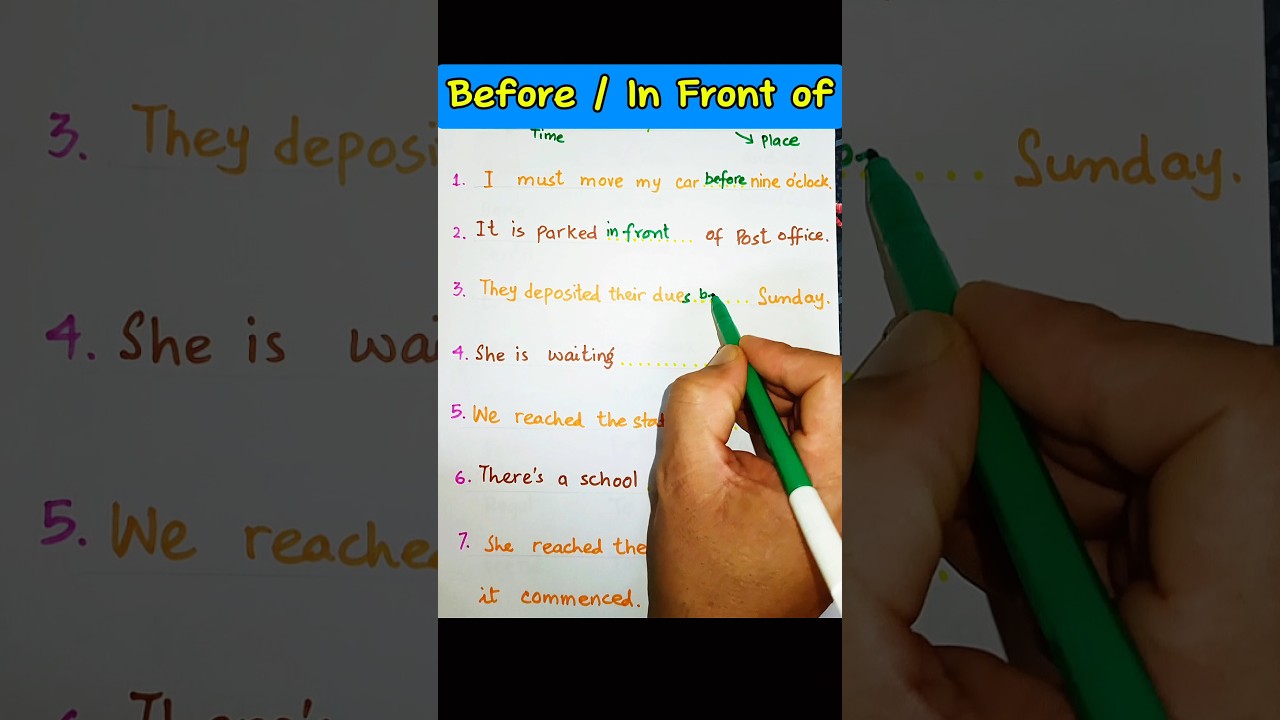 Before / In Front of
Time
Place
1. I must move my car before nine o'clock.
2. It is parked in front of Post office.
3. They deposited their dues b Sunday.
4. She is waiting
5. We reached the
6. There's a school
7. She reached the
it commenced.